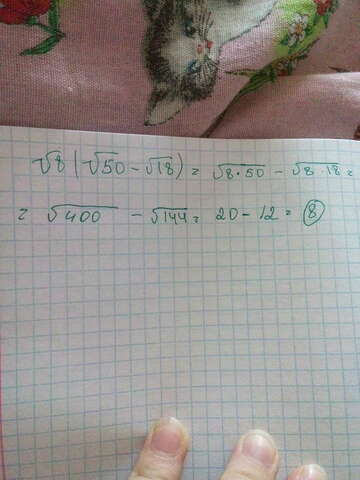 √8 (√50 - √18) = √8·50 - √8·18 =
= √400 - √144 = 20 - 12 = 8